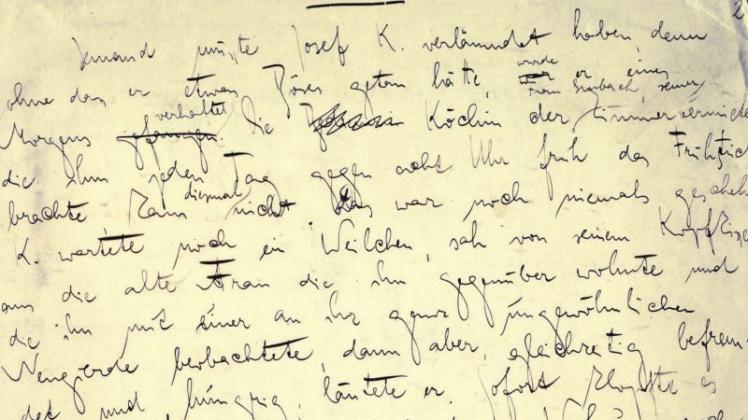 2
Jemand musste Josef K. verläumdet haben, denn
ohne dass er etwas Böses getan hätte, wurde er eines
Morgens verhaftet. Die Köchin der Frau Grubach, seiner Zimmervermiete
die ihm jeden Tag gegen acht Uhr früh das Frühstück
brachte kam diesmal nicht. Das war noch niemals gescheh
K. wartete noch ein Weilchen, sah von seinem Kopfkisse
aus die alte Frau die ihm gegenüber wohnte und
die ihn mit einer an ihr ganz ungewöhnlichen
Neugierde beobachtete, dann aber, gleichzeitig befrem-
det und hungrig, läutete er. Sofort klopfte es